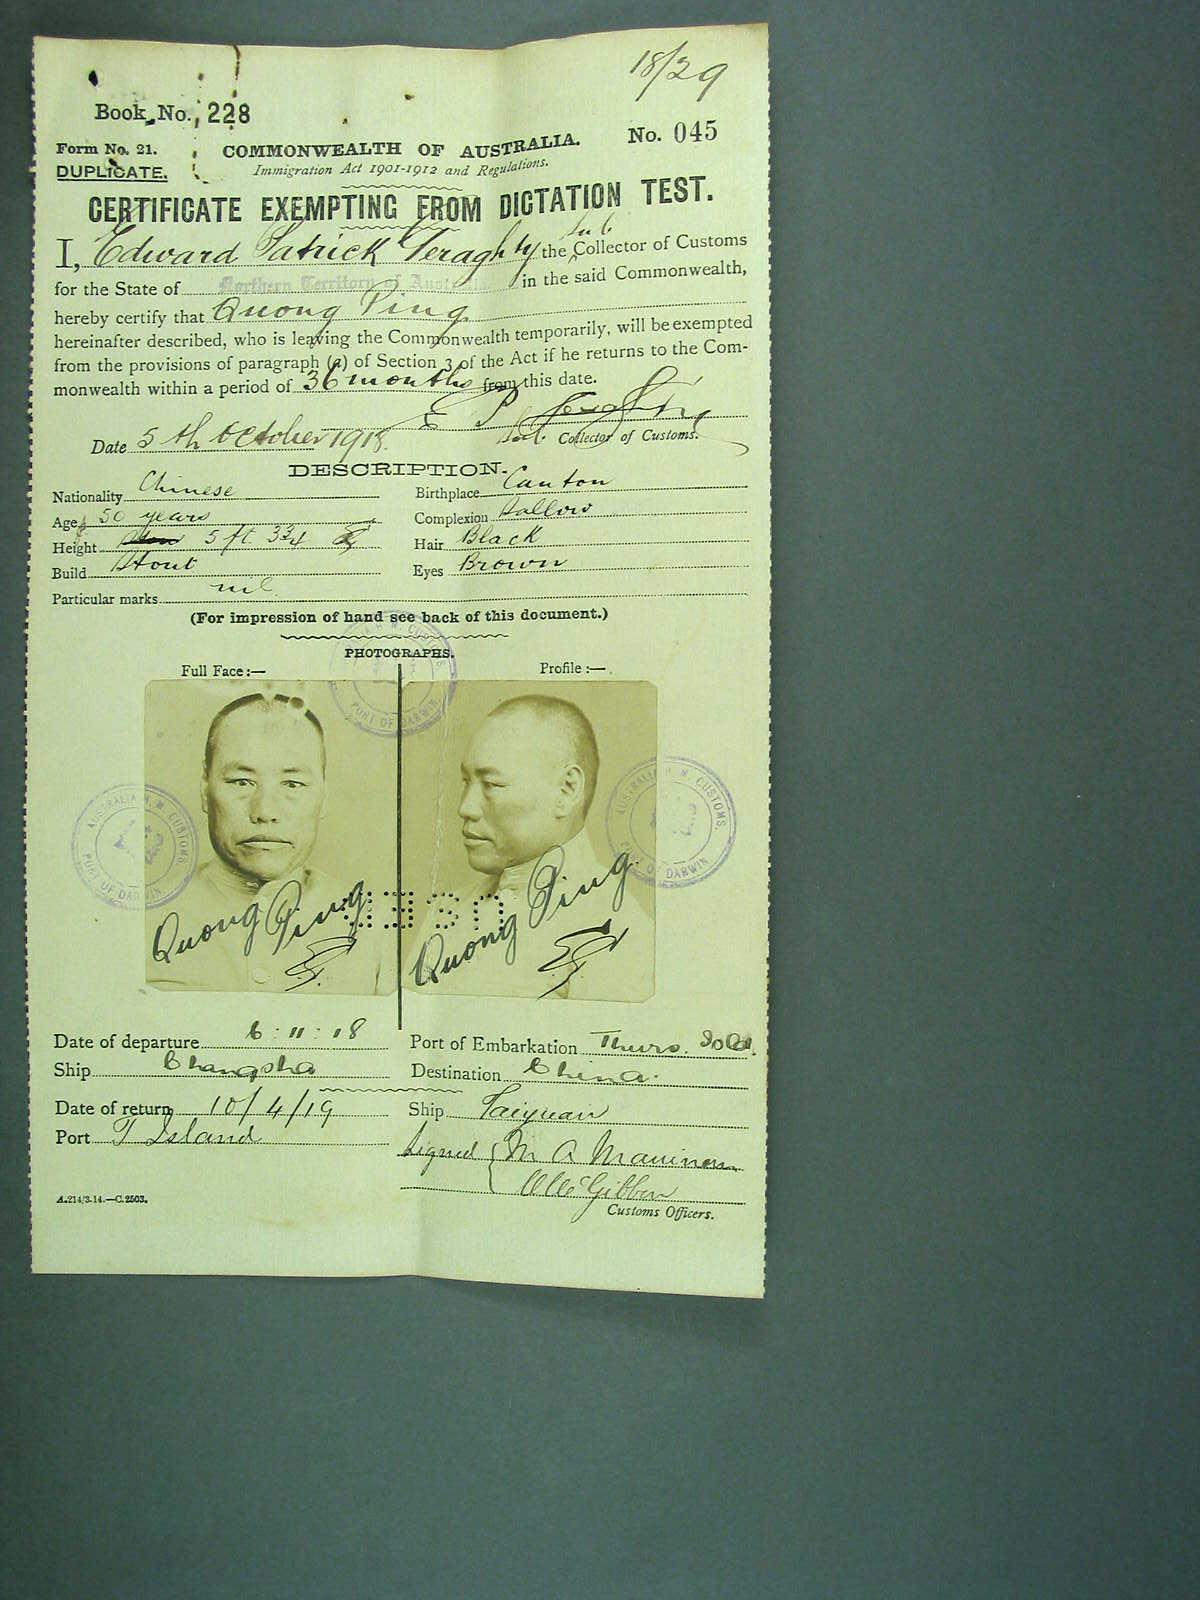 18/29
Book No. 228
Form No. 21.
COMMONWEALTH OF AUSTRALIA.
No. 045
DUPLICATE.
Immigration Act 1901-1912 and Regulations.
CERTIFICATE EXEMPTING FROM DICTATION TEST.
I, Edward Patrick Geraghty the Sub Collector of Customs
for the State of Northern Territory of Australia in the said Commonwealth,
hereby certify that Quong Ping
hereinafter described, who is leaving the Commonwealth temporarily, will be exempted
from the provisions of paragraph (a) of Section 3 of the Act if he returns to the Com-
monwealth within a period of 36 months from this date.
E P Geraghty
Date 5th October 1918.
Sub. Collector of Customs.
DESCRIPTION.
Nationality Chinese
Birthplace Canton
Age 50 years
Complexion Sallow
Height 5 ft 3 3/4
Hair Black
Build Stout
Eyes Brown
Particular marks nil
(For impression of hand see back of this document.)
PHOTOGRAPHS.
Full Face:—
Profile:—
AUSTRALIA H. M. CUSTOMS.
PORT OF DARWIN
Quong Ping
Quong Ping
Date of departure 6:11:18
Port of Embarkation Thurs. Isld.
Ship Changsha
Destination China.
Date of return 10/4/19
Ship Taiyuan
Port T Island
Signed
McGibbon
A.214/3.14.—C.2503.
Customs Officers.